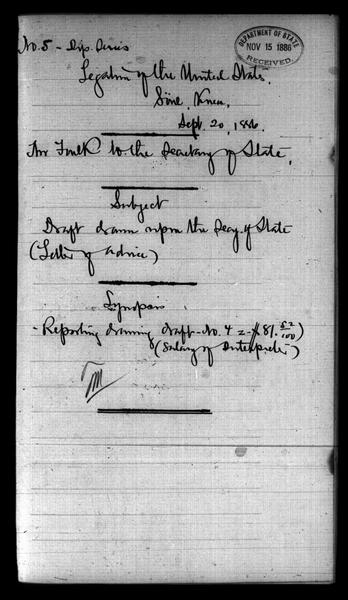 No. 5 - Dip. Series
DEPARTMENT OF STATE
NOV 15 1886
RECEIVED.
Legation of the United States.
Söul, Korea,
Sept. 20, 1886.
Mr Foulk to the Secretary of State.
Subject
Draft drawn upon the Secy. of State
(Letter of advice)
Synopsis
- Reporting drawing draft - No. 4 = $81. 52/100)
(Salary of Interpreter)